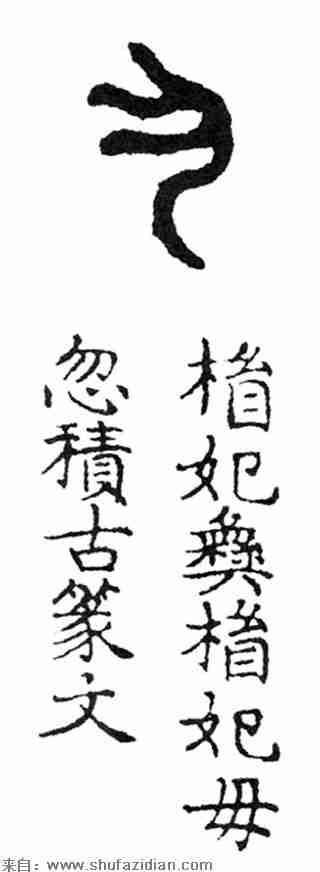 妃彝妃毋
忽積古篆文
来自：www.shufazidian.com